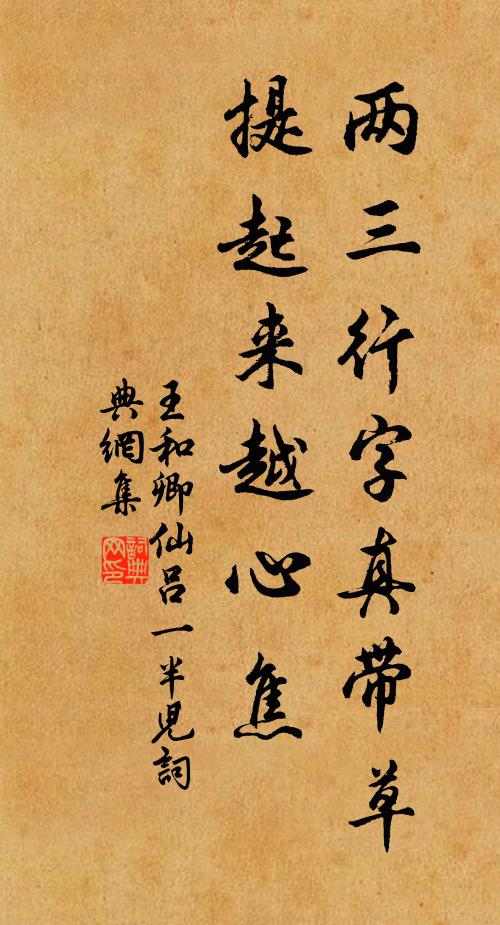 两三行字真带草
提起来越心焦
王和卿仙吕一半儿詞
典網集
詞典
网印